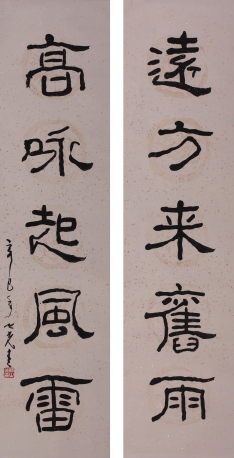 遠方来舊雨
高咏起風雷
辛巳年